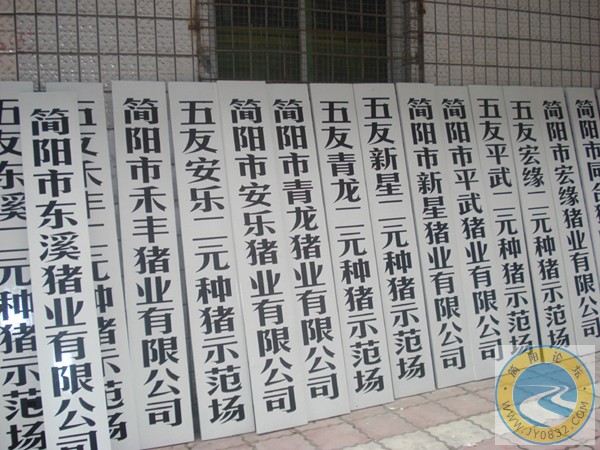 五友东溪二元种猪示范场
简阳市东溪猪业有限公司
五友禾丰二元种猪示范场
简阳市禾丰猪业有限公司
五友安乐二元种猪示范场
简阳市安乐猪业有限公司
简阳市青龙猪业有限公司
五友青龙二元种猪示范场
五友新星二元种猪示范场
简阳市新星猪业有限公司
简阳市平武猪业有限公司
五友平武二元种猪示范场
五友宏缘二元种猪示范场
简阳市宏缘猪业有限公司
简阳市同合猪
简阳论坛
WWW.JY0832.COM